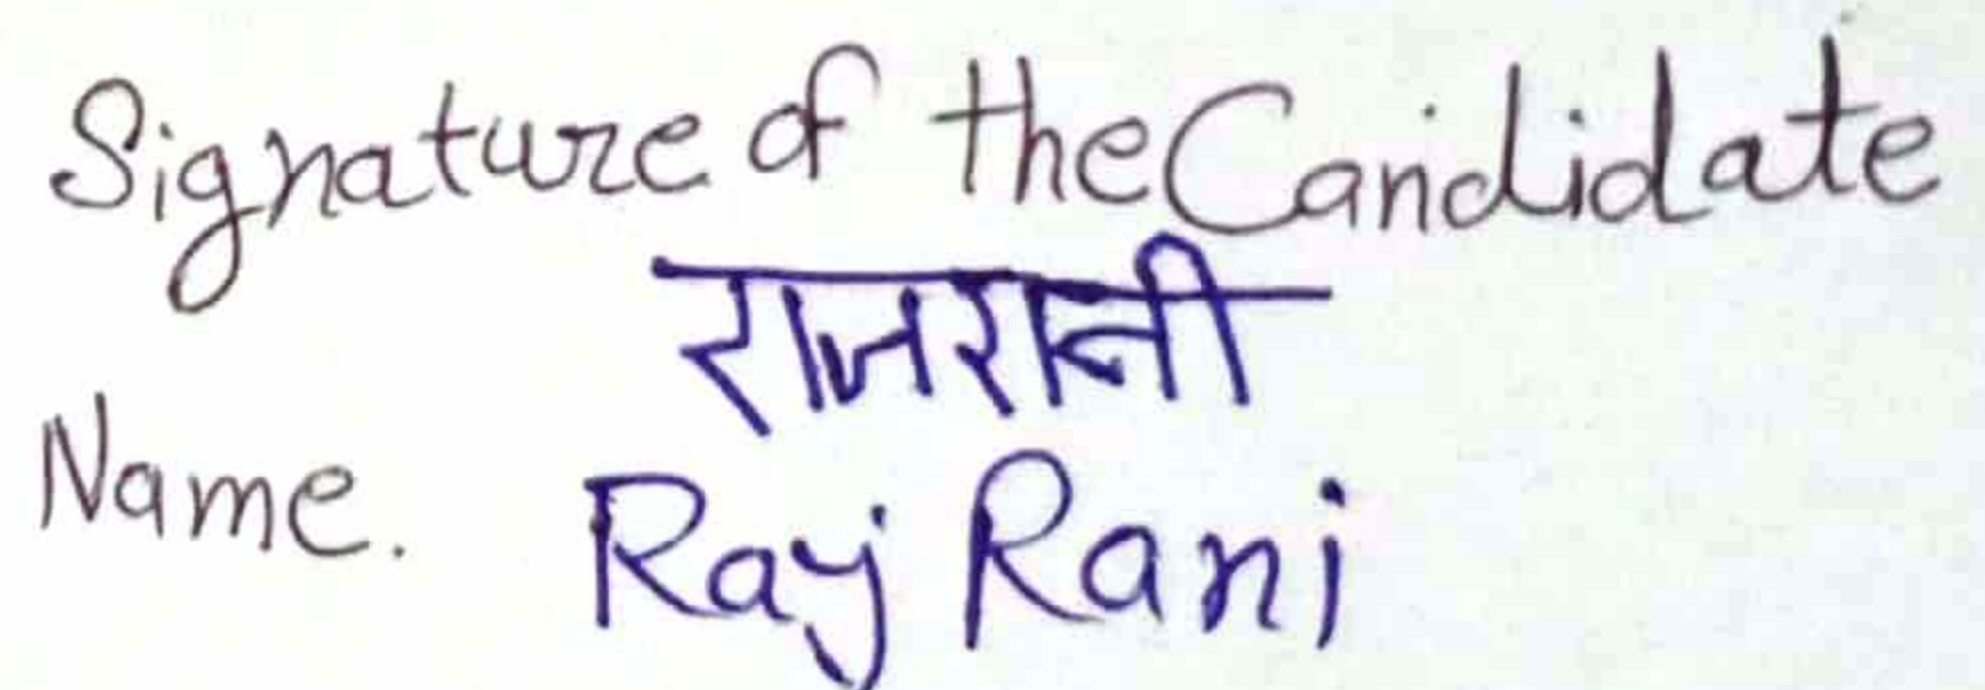 Signature of the Candidate
राजरानी
Name. Raj Rani